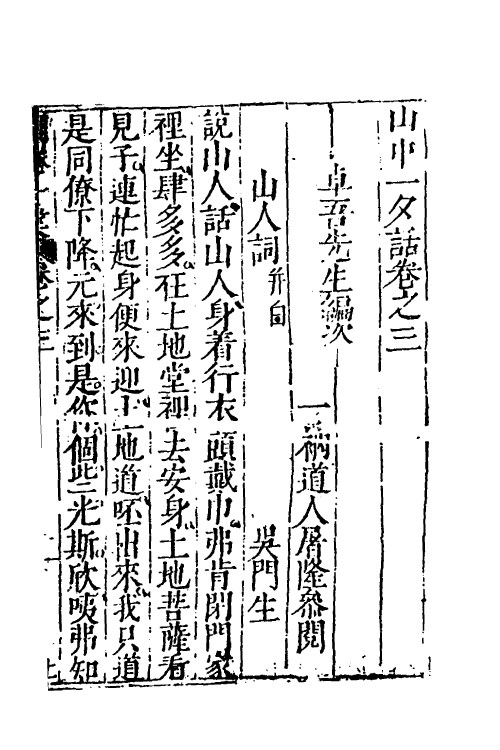 山中一夕話卷之三
卓吾先生編次
一衲道人屠隆參閱
山人詞并白 吳門生
說山人話山人身着行衣頭戴巾弗肯閉門家
裡坐肆多多在土地堂裡去安身土地菩薩看
見子連忙起身便來迎土地道呸出來我只道
是同僚下降元來到是你個些光斯欣咦弗知
卷之三